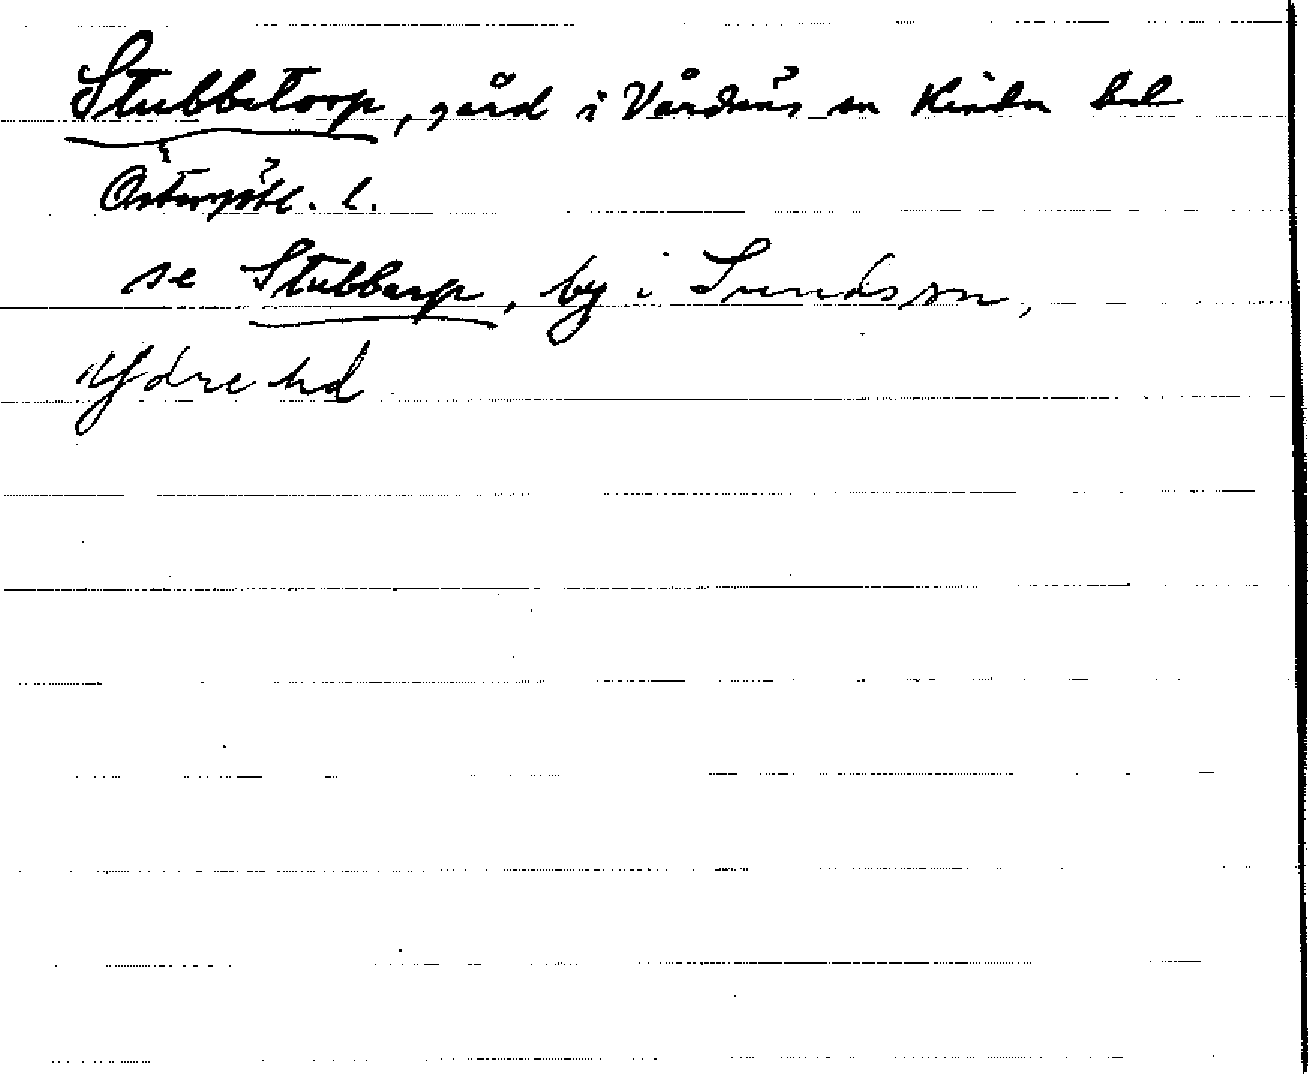 Stubbetorp, gård i Vårdnäs sn Kinda hd
Östergötl. l.
se Stubbarp, by i Sunds sn,
Ydre hd